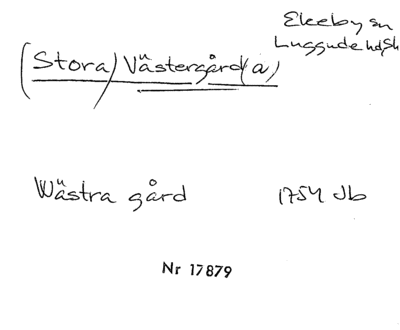 Ekeby sn
Luggude hd Sk
(Stora) Västergård(a)
Wästra gård 1754 Jb
Nr 17879